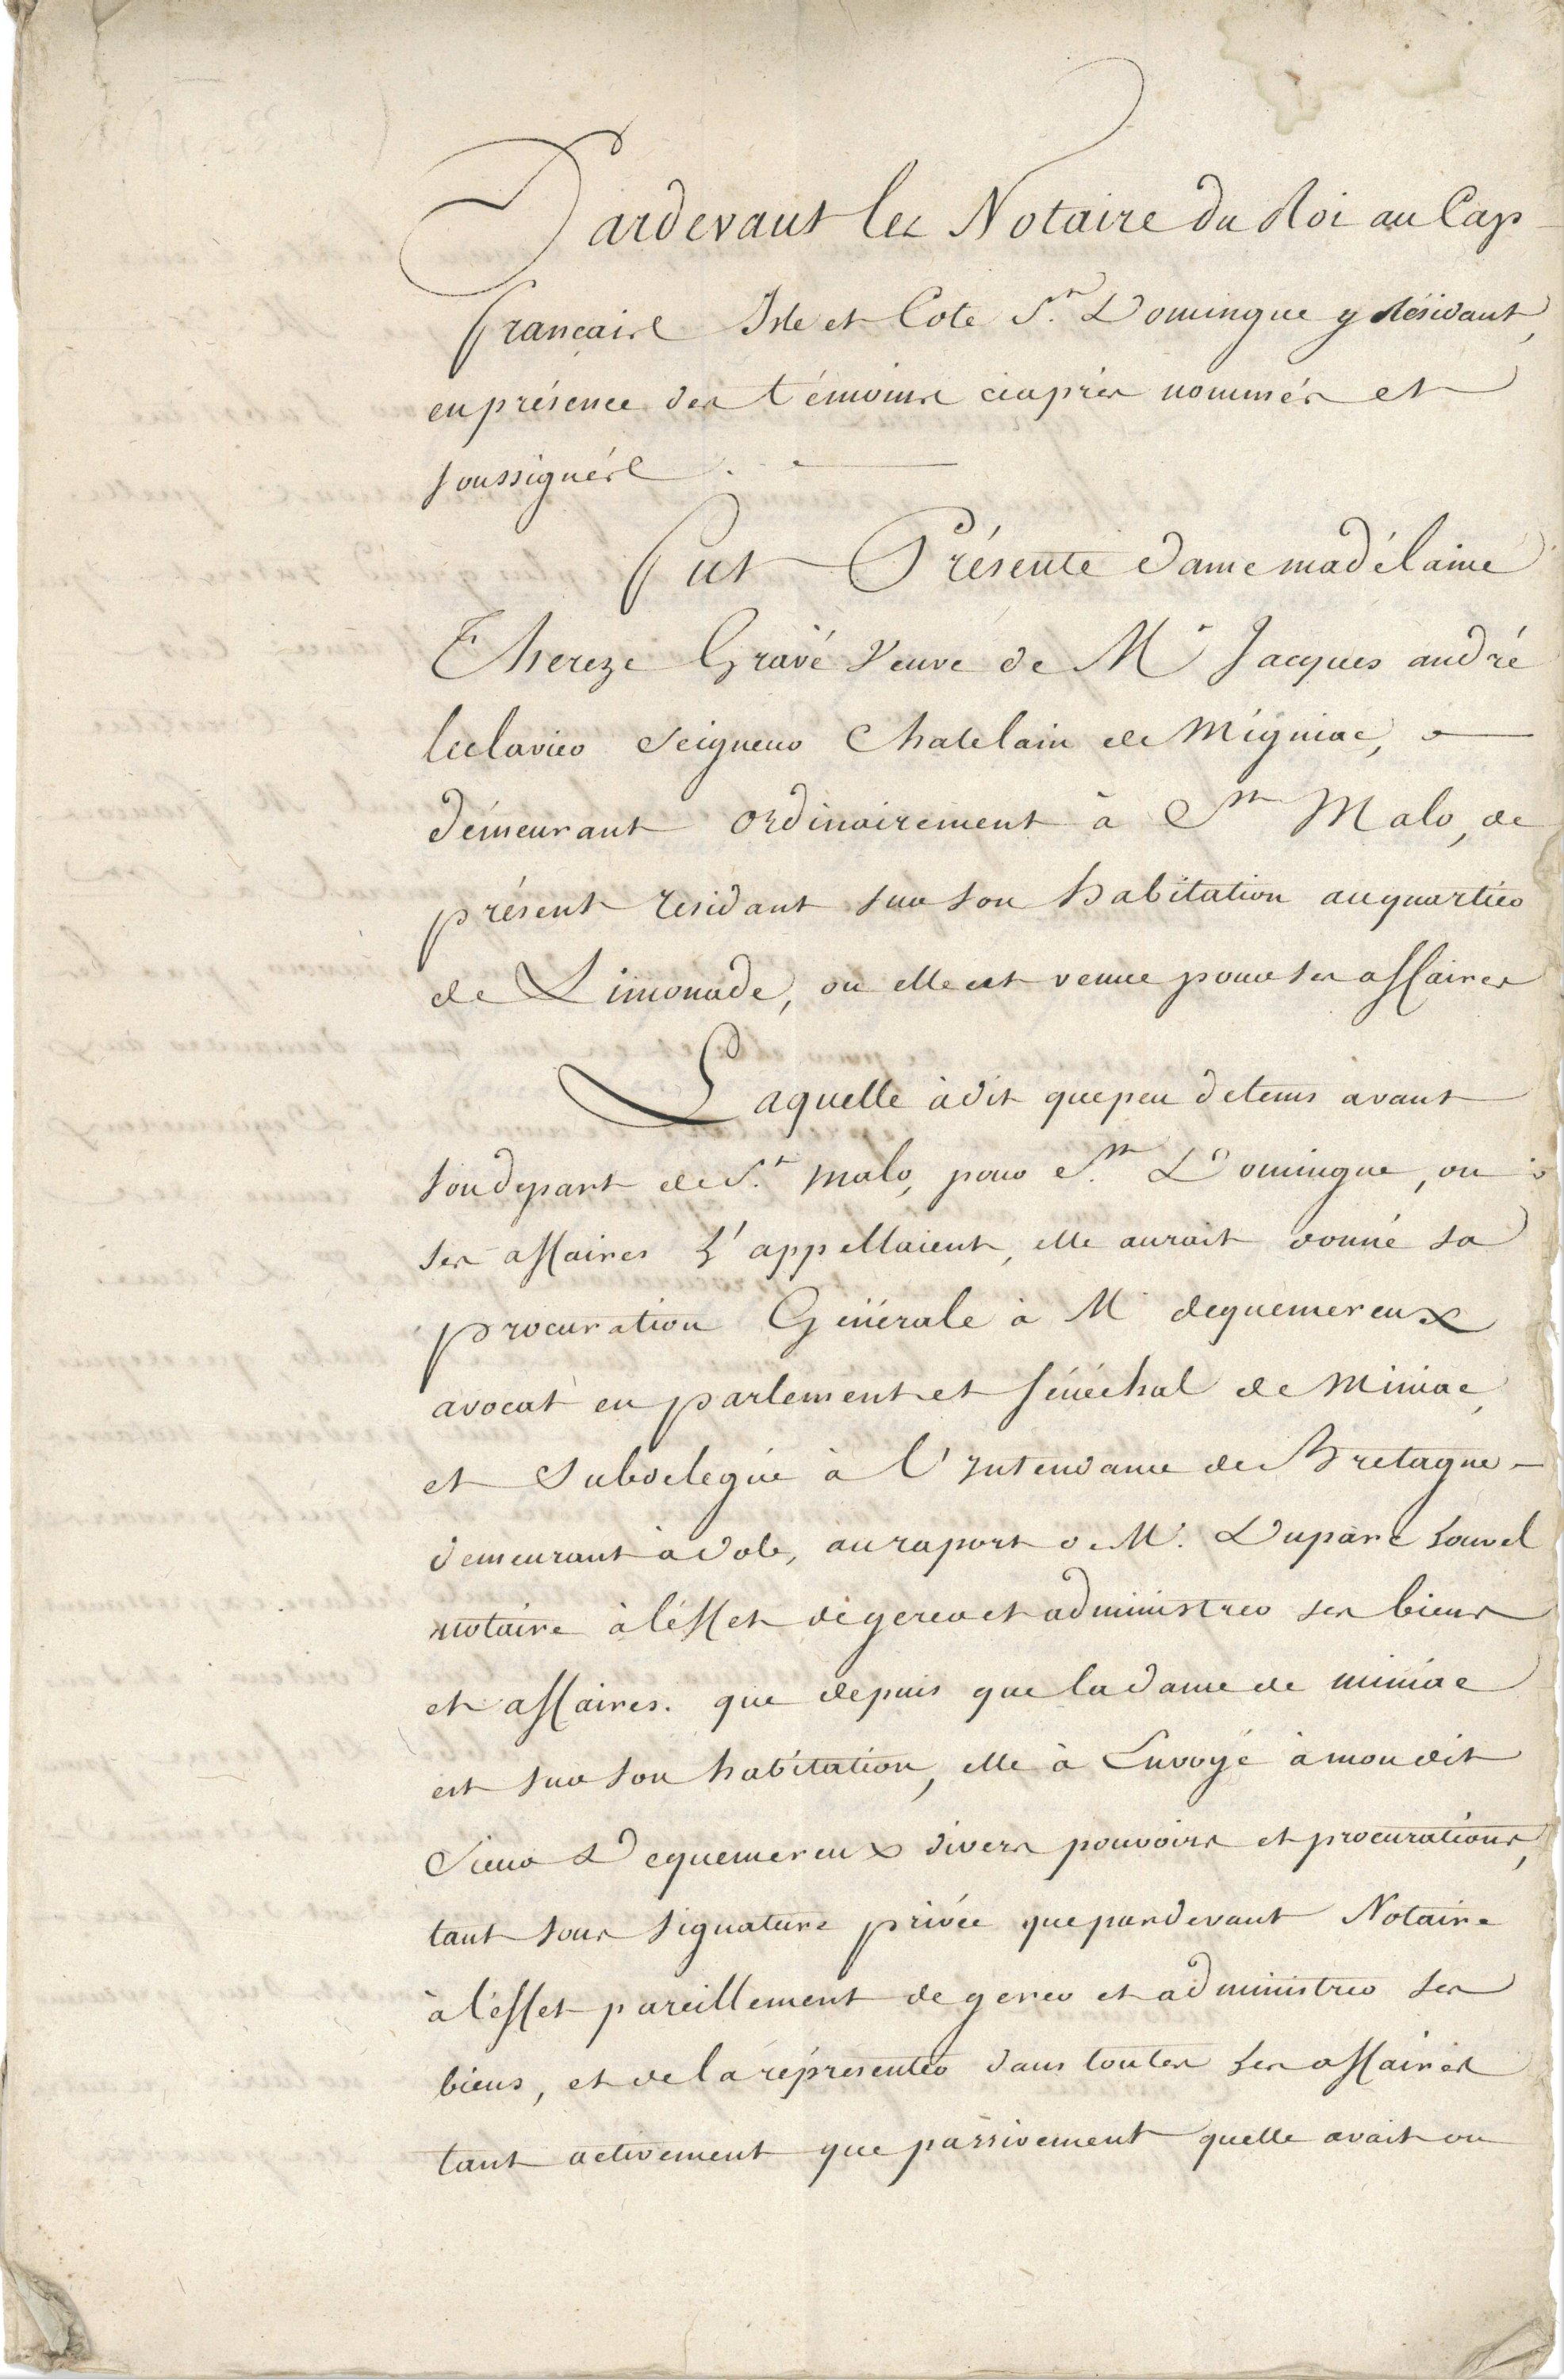 Pardevant les Notaire du Roi au Cap
français Isle et Cote St. Domingue y Résidant,
en présence des témoins ciaprès nommés et
soussignés.
fut Présente dame madélaine
Thereze Gravé Veuve de Mr Jacques andré
leclavier Seigneur Chatelain de Migniac,
démeurant ordinairement à St Malo, de
présent residant sur son habitation au quartier
de Limonade, ou elle est venue pour ses affaires
Laquelle à dit que peu detems avant
son depart de St. malo, pour St. Domingue, ou
ses affaires L'appellaient, elle aurait donné sa
procuration Générale à M dequemereux
avocat en parlement et sénéchal de Miniac,
et Subdelegué à l'Intendance de Bretagne
demeurant à dole, au raport de M. Duparc Louvel
notaire à l'éffet dé gerer et administrer ses biens
et affaires. que depuis que la dame de miniac
est sur son habitation, elle à Envoyé à mon dit
Sieur Dequemereux divers pouvoirs et procurations,
tant sous signature privée que pardevant Notaire
à l'effet pareillement de gerer et administrer ses
biens, et de la répresenter dans toutes ses affaires
tant activement que passivement quelle avait ou